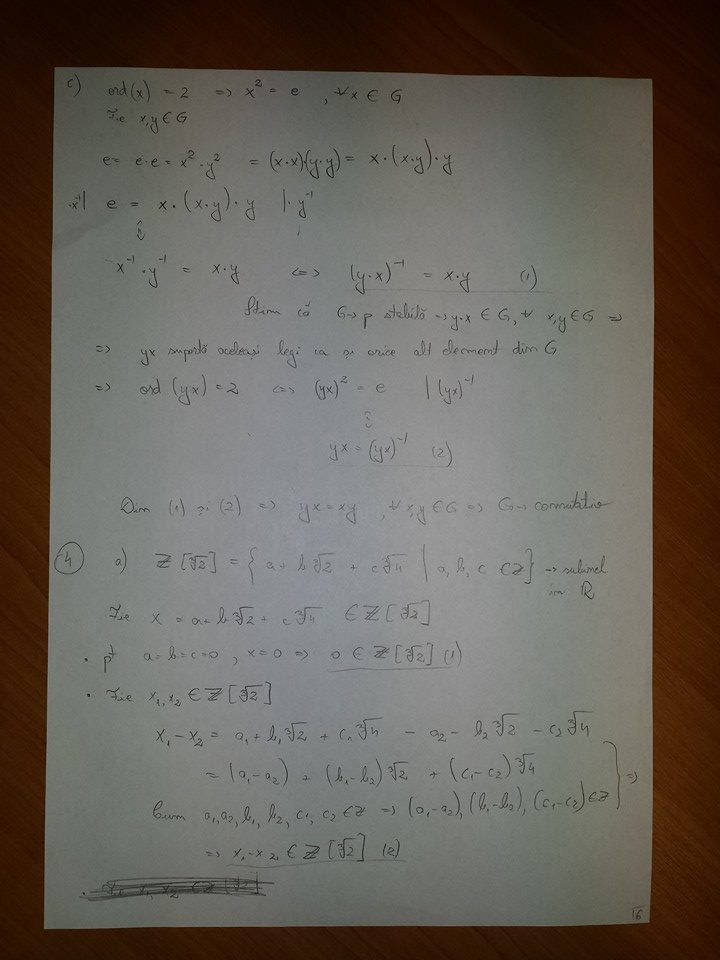 c) ord(x) = 2 => x² = e , ∀x ∈ G
Fie x,y ∈ G
e = e·e = x²·y² = (x·x)(y·y) = x·(x·y)·y
·x⁻¹| e = x·(x·y)·y |·y⁻¹
⇕
x⁻¹·y⁻¹ = x·y <=> (y·x)⁻¹ = x·y (1)
Știm că G → p stabilă => y·x ∈ G, ∀ x,y ∈ G =>
=> yx suportă aceleași legi ca și orice alt element din G
=> ord (yx) = 2 <=> (yx)² = e | (yx)⁻¹
⇕
yx = (yx)⁻¹ (2)
Din (1) și (2) => yx = xy , ∀x,y ∈ G => G → comutativ
4 a) ℤ[∛2] = { a + b∛2 + c∛4 | a, b, c ∈ ℤ } → subinel
în ℝ
Fie x = a + b∛2 + c∛4 ∈ ℤ[∛2]
· pt a = b = c = 0 , x = 0 => 0 ∈ ℤ[∛2] (1)
· Fie x₁, x₂ ∈ ℤ[∛2]
x₁ - x₂ = a₁ + b₁∛2 + c₁∛4 - a₂ - b₂∛2 - c₂∛4
= (a₁-a₂) + (b₁-b₂)∛2 + (c₁-c₂)∛4
Cum a₁,a₂, b₁, b₂, c₁, c₂ ∈ ℤ => (a₁-a₂), (b₁-b₂), (c₁-c₂) ∈ ℤ =>
=> x₁-x₂ ∈ ℤ[∛2] (2)
16